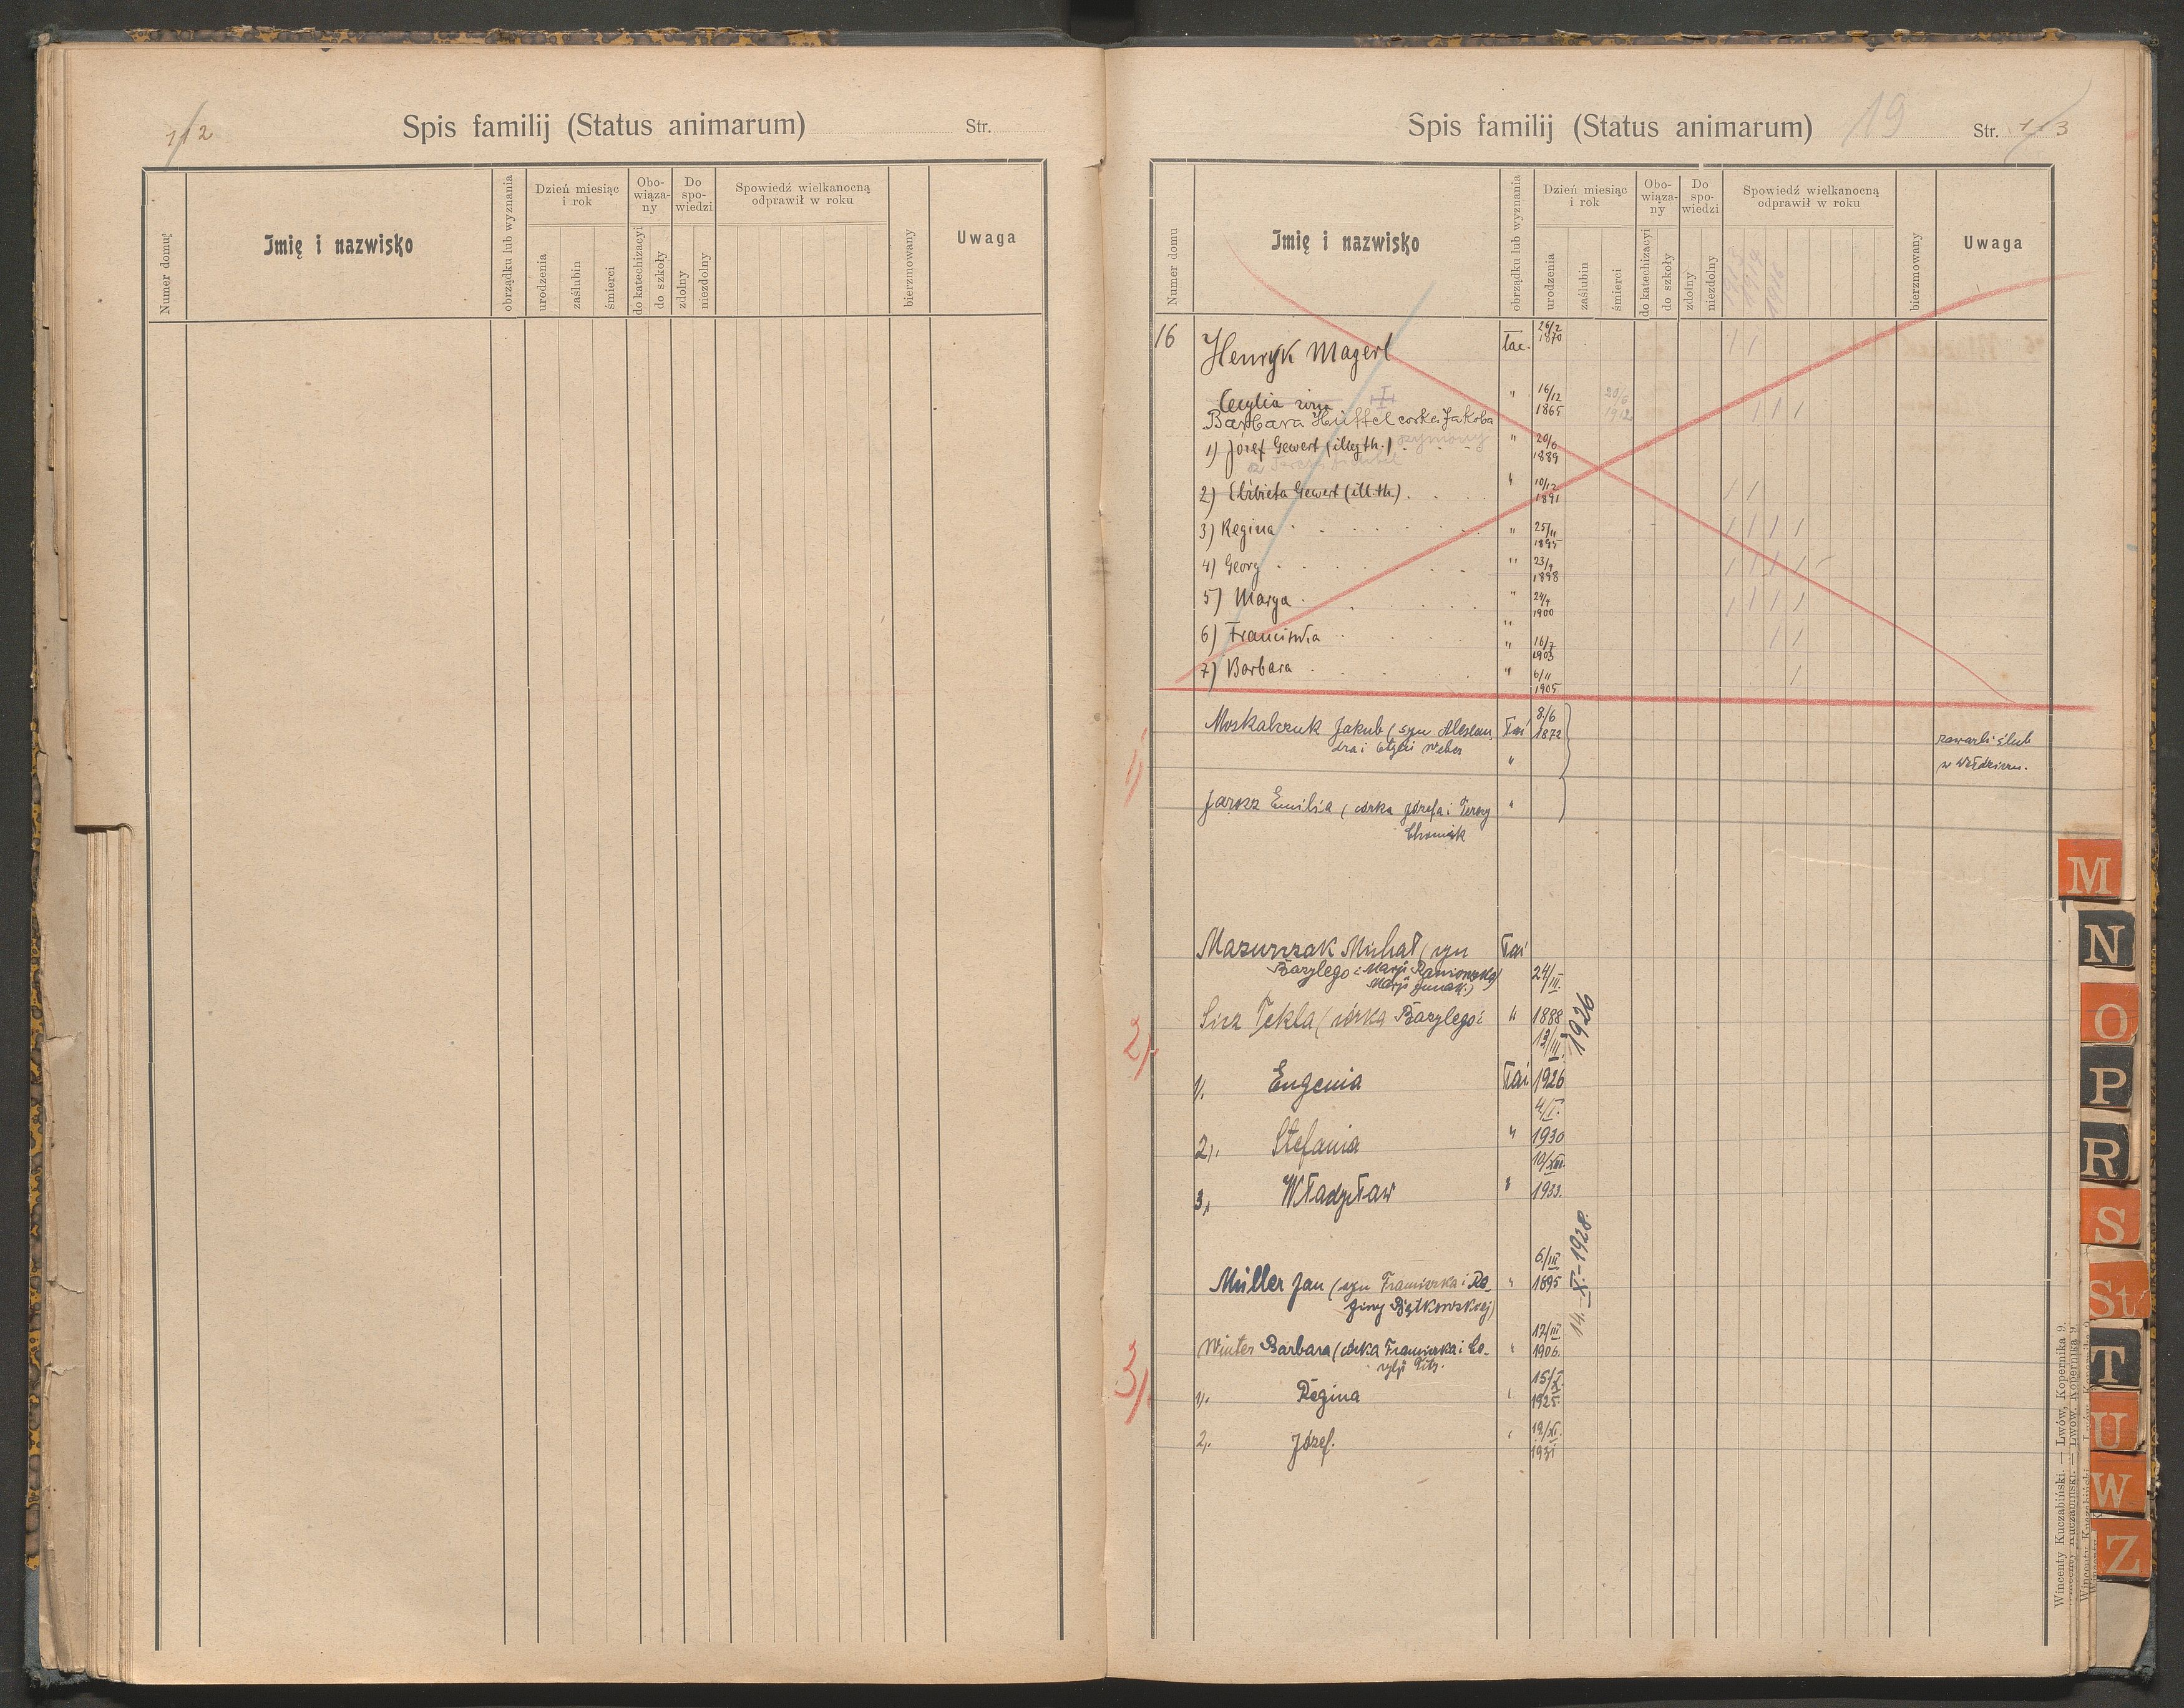 112
Spis familij (Status animarum)
Str.
Numer domu
Imię i nazwisko
obrządku lub wyznania
Dzień miesiąc i rok
urodzenia
zaślubin
śmierci
Obowiązany
do katechizacyi
do szkoły
Do spowiedzi
zdolny
niezdolny
Spowiedź wielkanocną odprawił w roku
bierzmowany
Uwaga
Spis familij (Status animarum) 19
Str. 113
Numer domu
Imię i nazwisko
obrządku lub wyznania
Dzień miesiąc i rok
urodzenia
zaślubin
śmierci
Obowiązany
do katechizacyi
do szkoły
Do spowiedzi
zdolny
niezdolny
Spowiedź wielkanocną odprawił w roku
1914 1916
bierzmowany
Uwaga
16 Henryk Magerl łac. 26/2 1870
Cecylia żona " 16/12 1865 20/6 1912
Barbara Hüffel corka Jakoba
1) Józef Gewert (illeg th.) " 20/6 1889
2) Elżbieta Gewert (ill. th.) " 10/12 1891
3) Regina " 25/11 1895
4) Georg " 23/9 1898
5) Marya " 24/4 1900
6) Franciszka " 16/7 1903
7) Barbara " 6/11 1905
1) Moskalczuk Jakub (syn łać 8/6 1872 zawarli ślub
Weber "
Jarosz Emilia (córka Józefa i Teresy "
Chomiak
Mazurczak Michał (syn łać
Bazylego i Marji 24/III.
2) Sicz Tekla (córka Bazylego i " 1888 1926
13/III.
1. Eugenia łać 1926
4/I.
2. Stefania " 1930
10/XII.
3. Władysław " 1933.
6/III
Müller Jan (syn Franciszka i Re- " 1895 14.-X.-1928.
giny Piątkowskiej)
17/III
3) Winter Barbara (córka Franciszka i Ce- " 1906.
cylji
15/X.
1. Regina 1925.
19/XI.
2. Józef. 1931
M
N
O
P
R
S
St
T
U
W
Z
Wincenty Kuczabiński. — Lwów, Kopernika 9.